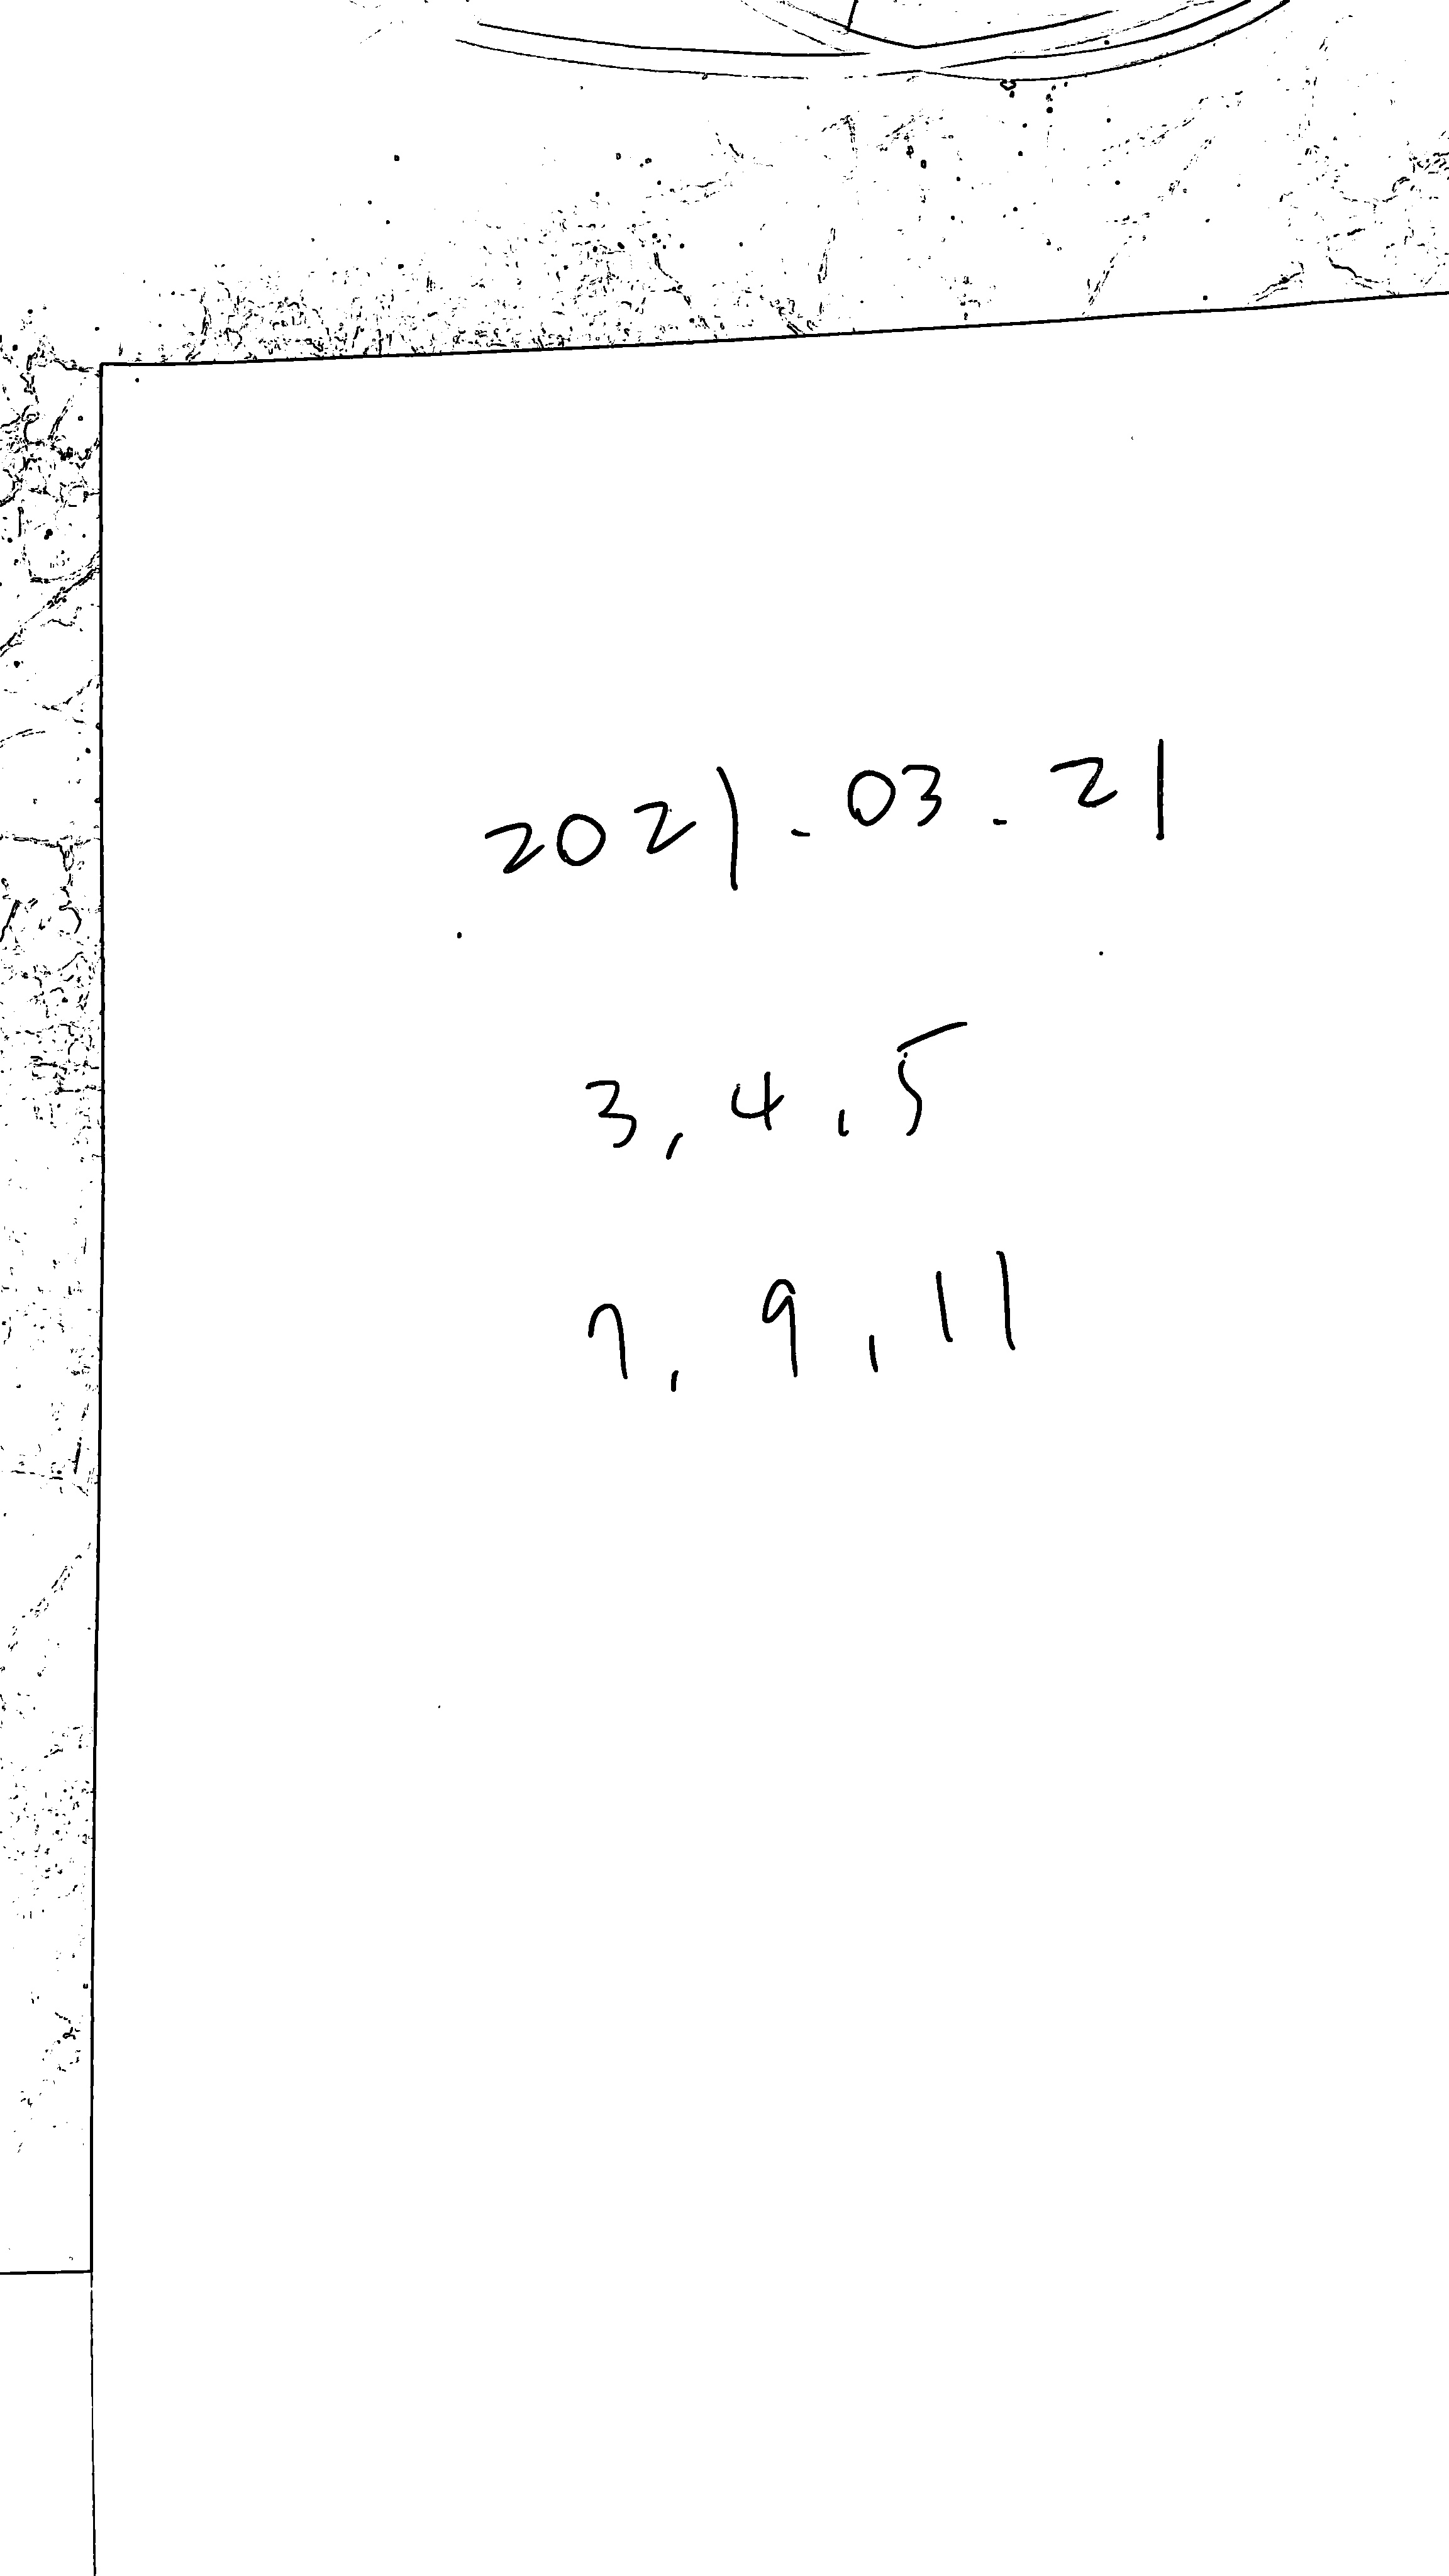 2021.03.21
3,4,5
7,9,11